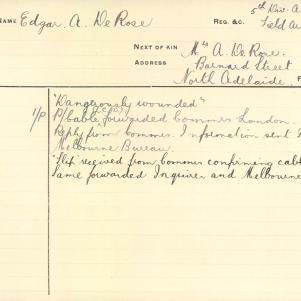 5th Div. A
NAME Edgar. A. De Rose. REG. &C. Field Ar
NEXT OF KIN Mrs A. De Rose.
ADDRESS Barnard Street
North Adelaide. F
1/P "Dangerously wounded"
Cable forwarded Commrs London.
Reply from Commrs. Information sent
Melbourne Bureau.
"Slip" received from Commrs confirming cabl
Same forwarded Inquirer and Melbourne